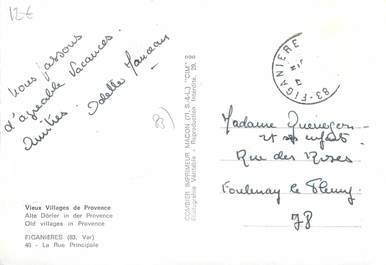 12€
Nous passons
d'agreable Vacances.
Amitiés. Odette
Vieux Villages de Provence
Alte Dörfer in der Provence
Old villages in Provence
FIGANIÈRES (83. Var)
40 - La Rue Principale
COMBIER IMPRIMEUR MACON (71.-S.-&-L.) "CIM"
Photographie Véritable - Reproduction Interdite.
83-FIGANIERES
Madame
et ses enfants
Rue des Roses
Fontenay le Fleury
78